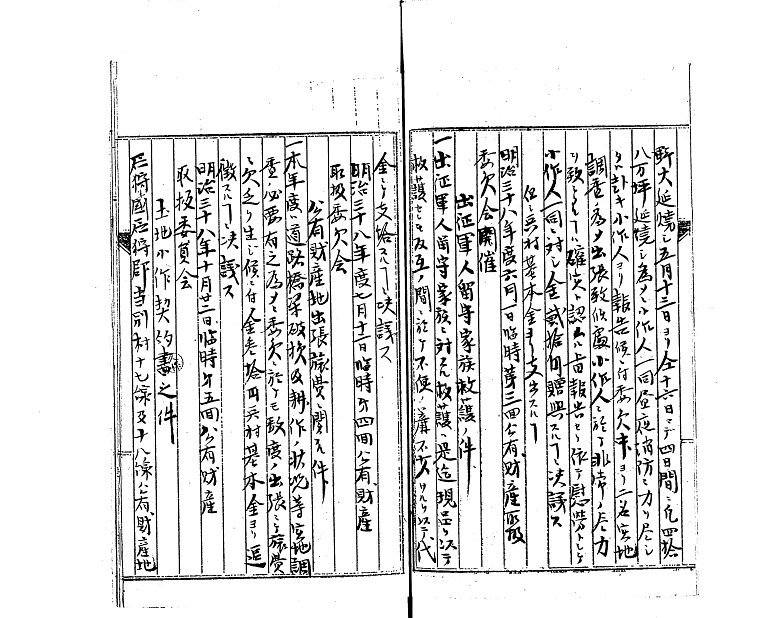 野火延焼シ五月十三日ヨリ仝十六日マテ四日間ニ凡四拾
八万坪延焼シ為メニ小作人一同昼夜消防ニ力ヲ尽シ
タル趣キ小作人ヨリ報告候ニ付委員中ヨリ二名実地
調査ノ為メ出張致候処小作人ニ於テ非常ノ尽力
ヲ致シタルコト確実ト認ムル旨報告セリ依テ慰労トシテ
小作人一同ニ対シ金貳拾円贈与スルコトニ決議ス
但シ兵村基本金ヨリ支出スルコト
明治三十八年度六月一日臨時第三回公有財産取扱
委員会開催
出征軍人留守家族救護ノ件
一出征軍人留守家族ニ対スル救護ハ是迄現品ヲ以テ
救護セシモ反互ノ間ニ於テ不便ノ廉不少ナルヲ以テ代
金ニテ支給スルコトニ決議ス
明治三十八年度七月十一日臨時第四回公有財産
取扱委員会
公有財産地出張旅費ニ関スル件
一本年度ハ道路橋梁破損及耕作ノ状況等実地調
査ノ必要有之為メニ委員ニ於テモ数度ノ出張ニテ旅費
ニ欠乏ヲ生シ候ニ付金参拾円兵村基本金ヨリ追
徴スルコトニ決議ス
明治三十八年十月廿二日臨時第五回公有財産
取扱委員会
土地小作契約書之件
石狩國石狩郡当別村十七線及十八線公有財産地